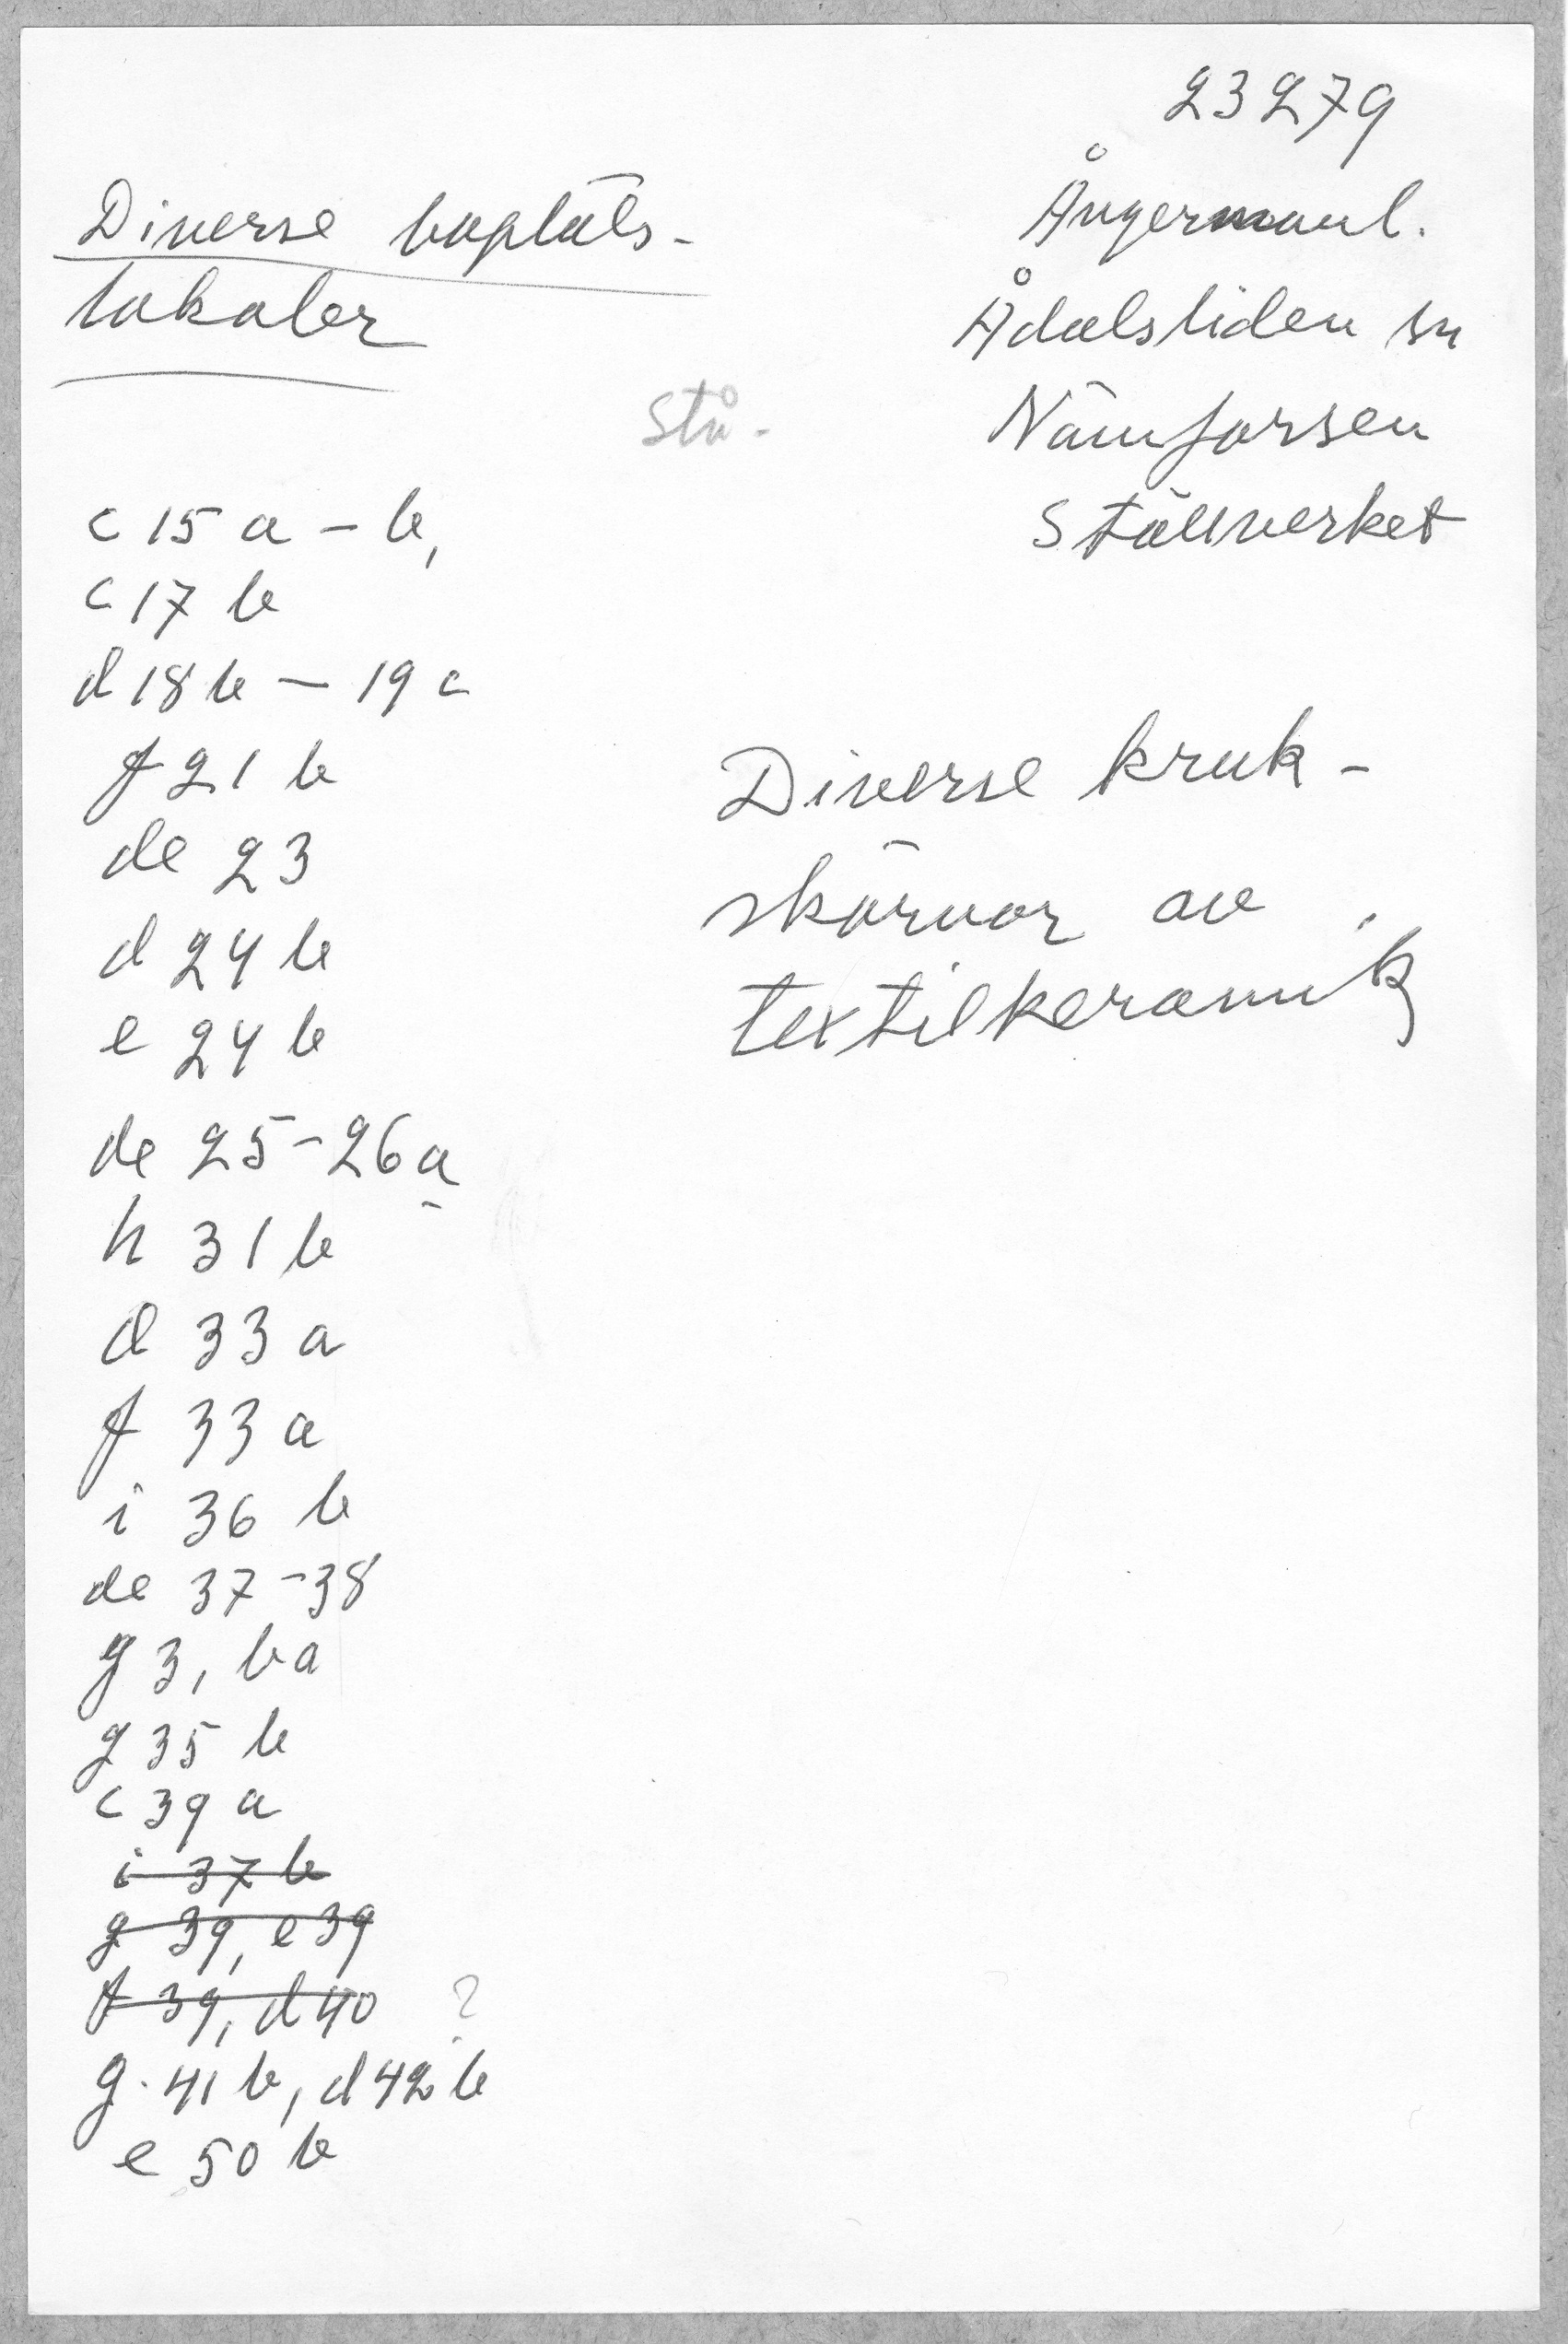 23279
Ångermanl.
Ådalsliden sn
Nämforsen
Ställverket
Diverse boplats-
lokaler
Stå-
c 15 a - b,
c 17 b
d 18 b - 19 c
f 21 b
de 23
d 24 b
e 24 b
de 25-26 a
h 31 b
d 33 a
f 33 a
i 36 b
de 37-38
g 3, ba
g 35 b
c 39 a
i 37 b
g 39, e 39
f 39, d 40 ?
g. 41 b, d 42 b
e 50 b
Diverse kruk-
skärvor av
textilkeramik